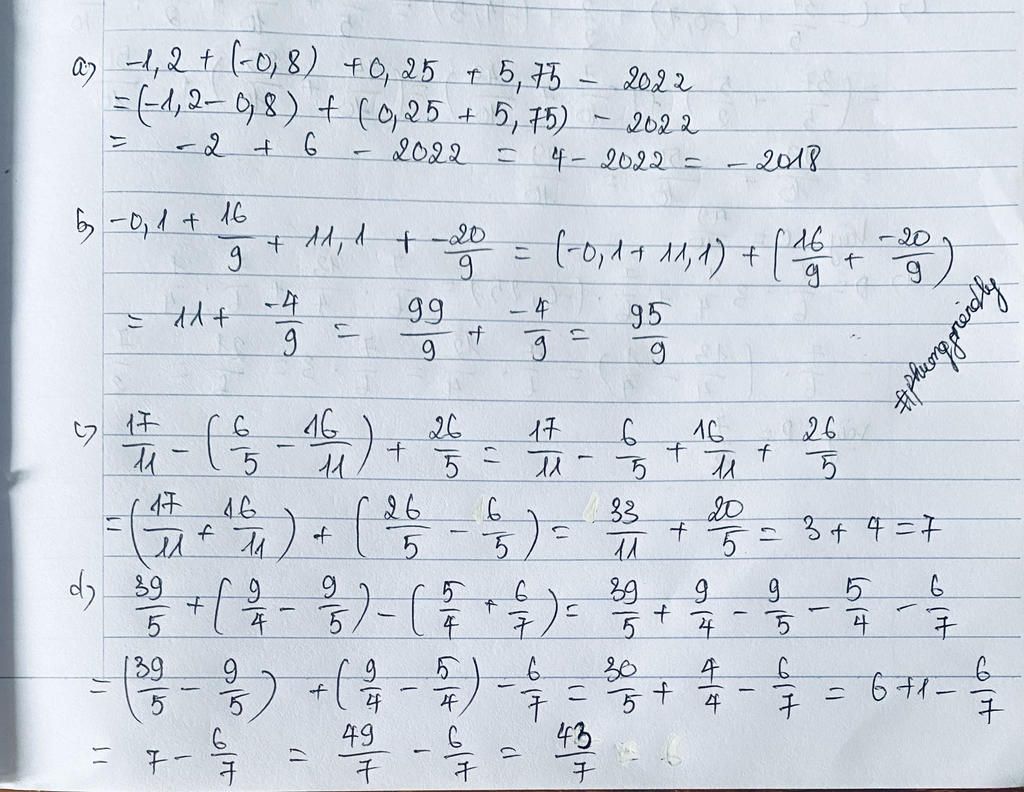 a) -1,2 + (-0,8) + 0,25 + 5,75 - 2022
= (-1,2 - 0,8) + (0,25 + 5,75) - 2022
= -2 + 6 - 2022 = 4 - 2022 = -2018
b) -0,1 + 16/9 + 11,1 + -20/9 = (-0,1 + 11,1) + (16/9 + -20/9)
= 11 + -4/9 = 99/9 + -4/9 = 95/9
c) 17/11 - (6/5 - 16/11) + 26/5 = 17/11 - 6/5 + 16/11 + 26/5
= (17/11 + 16/11) + (26/5 - 6/5) = 33/11 + 20/5 = 3 + 4 = 7
d) 39/5 + (9/4 - 9/5) - (5/4 + 6/7) = 39/5 + 9/4 - 9/5 - 5/4 - 6/7
= (39/5 - 9/5) + (9/4 - 5/4) - 6/7 = 30/5 + 4/4 - 6/7 = 6 + 1 - 6/7
= 7 - 6/7 = 49/7 - 6/7 = 43/7